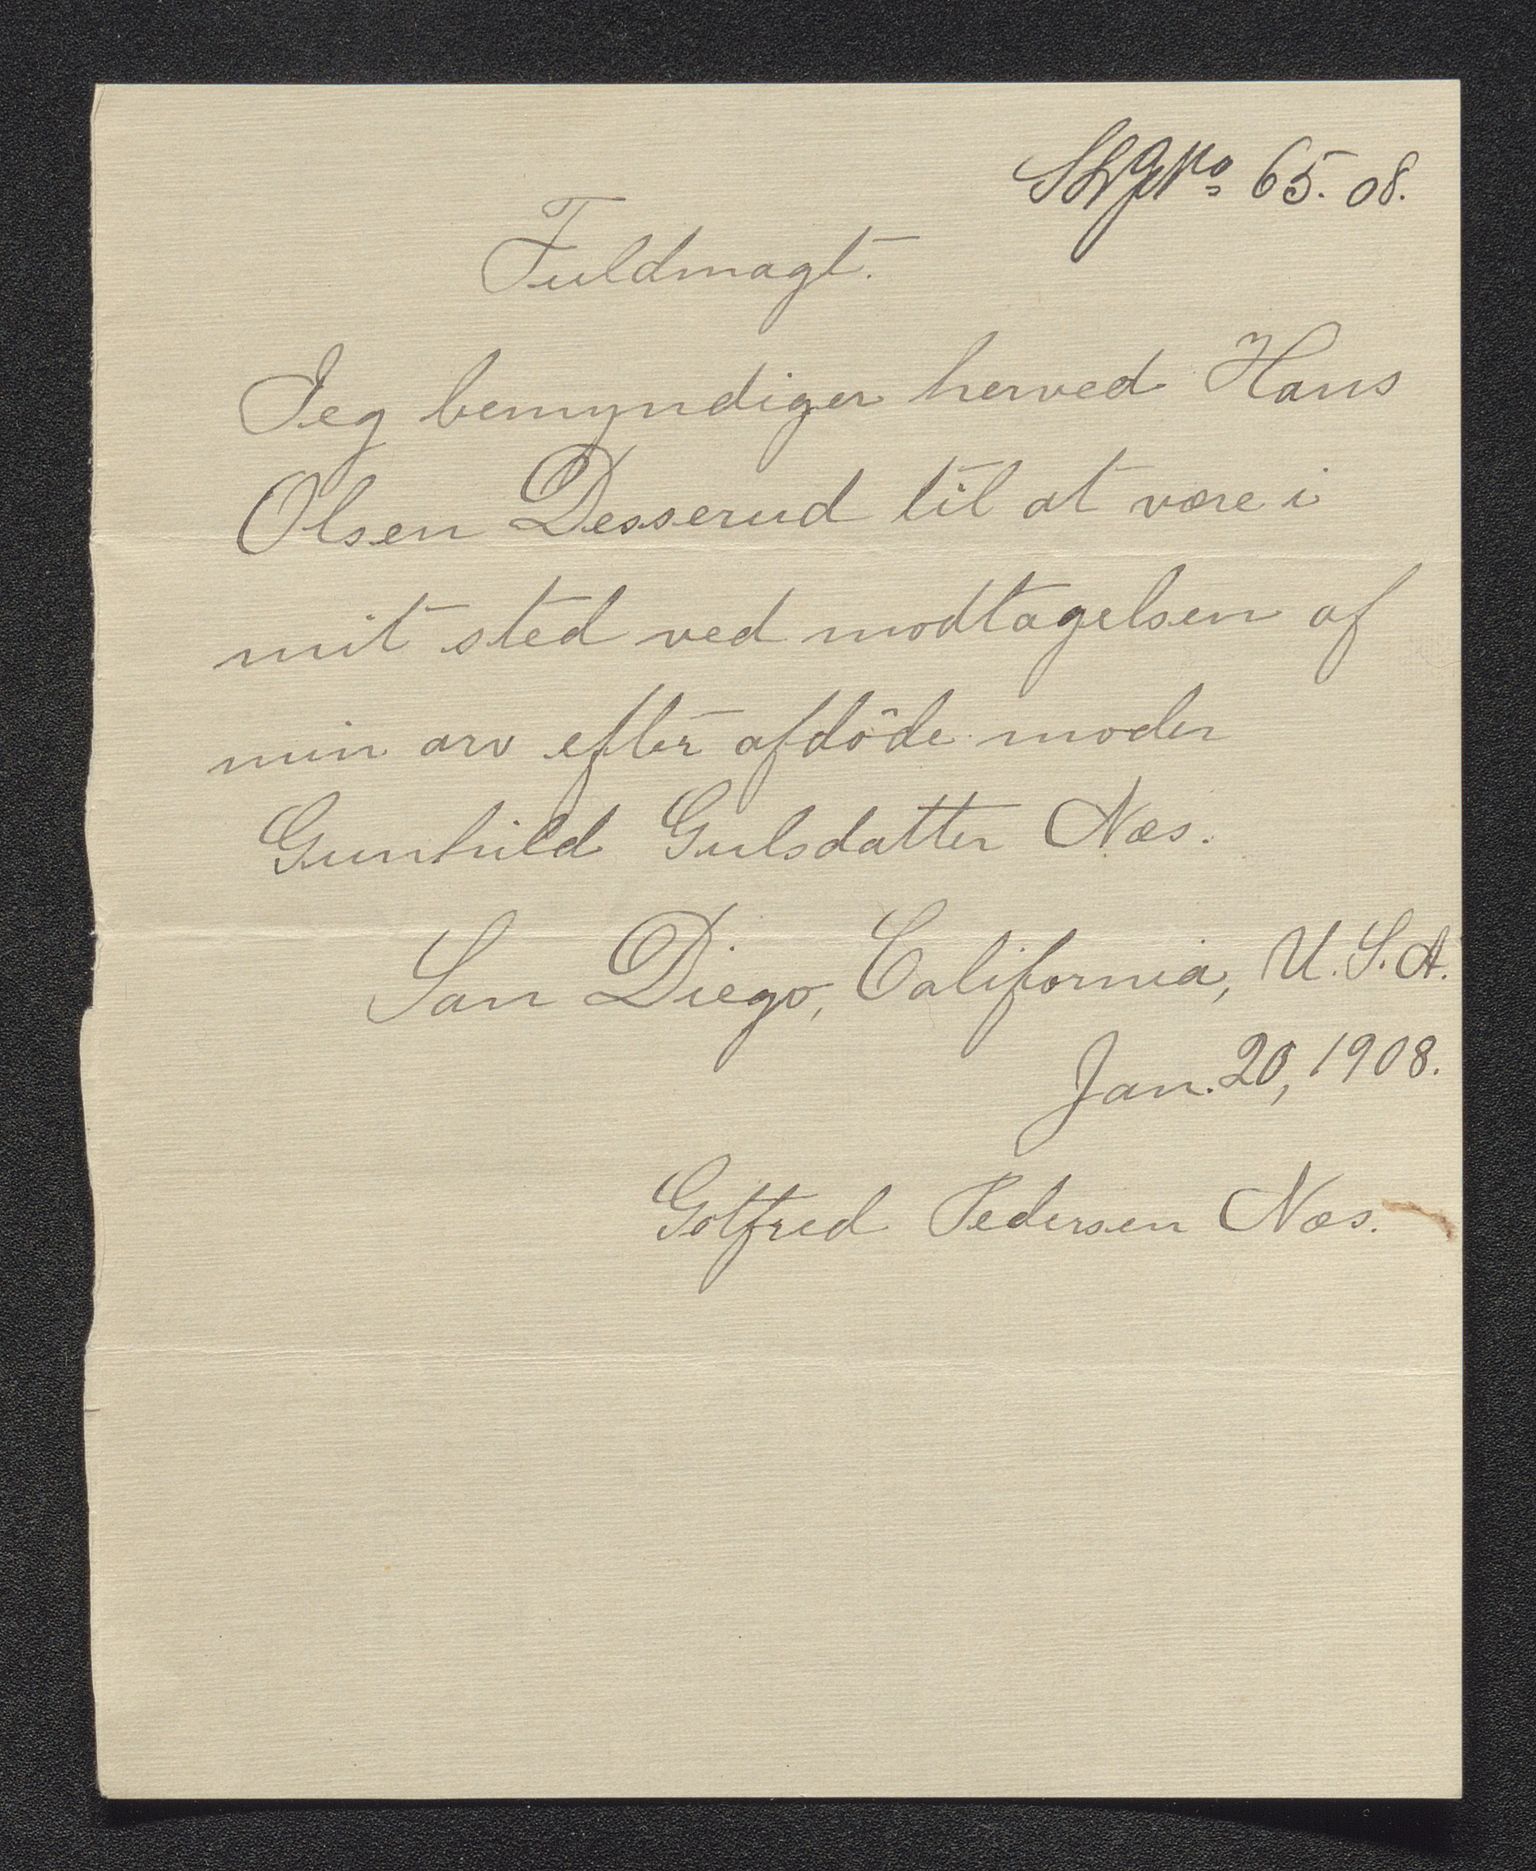 65. 08.
Fuldmagt.
Jeg bemyndiger herved Hans
Olsen Desserud til at være i
mit sted ved modtagelsen af
min arv efter afdöde moder
Gunhild Gulsdatter Næs.
San Diego, California, U. S. A.
Jan. 20, 1908.
Gotfred Pedersen Næs.